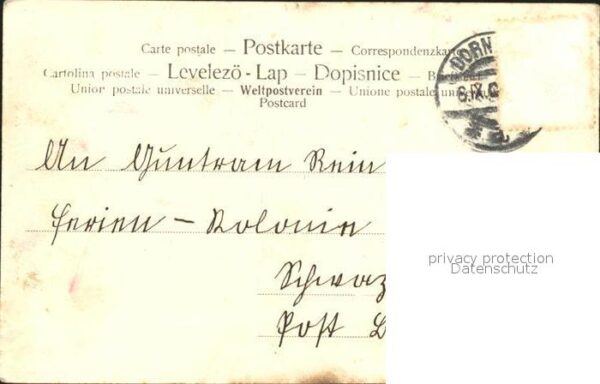 Carte postale — Postkarte — Correspondenzkarte
Cartolina postale — Levelező-Lap — Dopisnice —
Union postale universelle — Weltpostverein — Unione postale
Postcard
DORN
6.IX.0
An Guntram Rein
Ferien – Kolonie
Schwaz
Post
privacy protection
Datenschutz